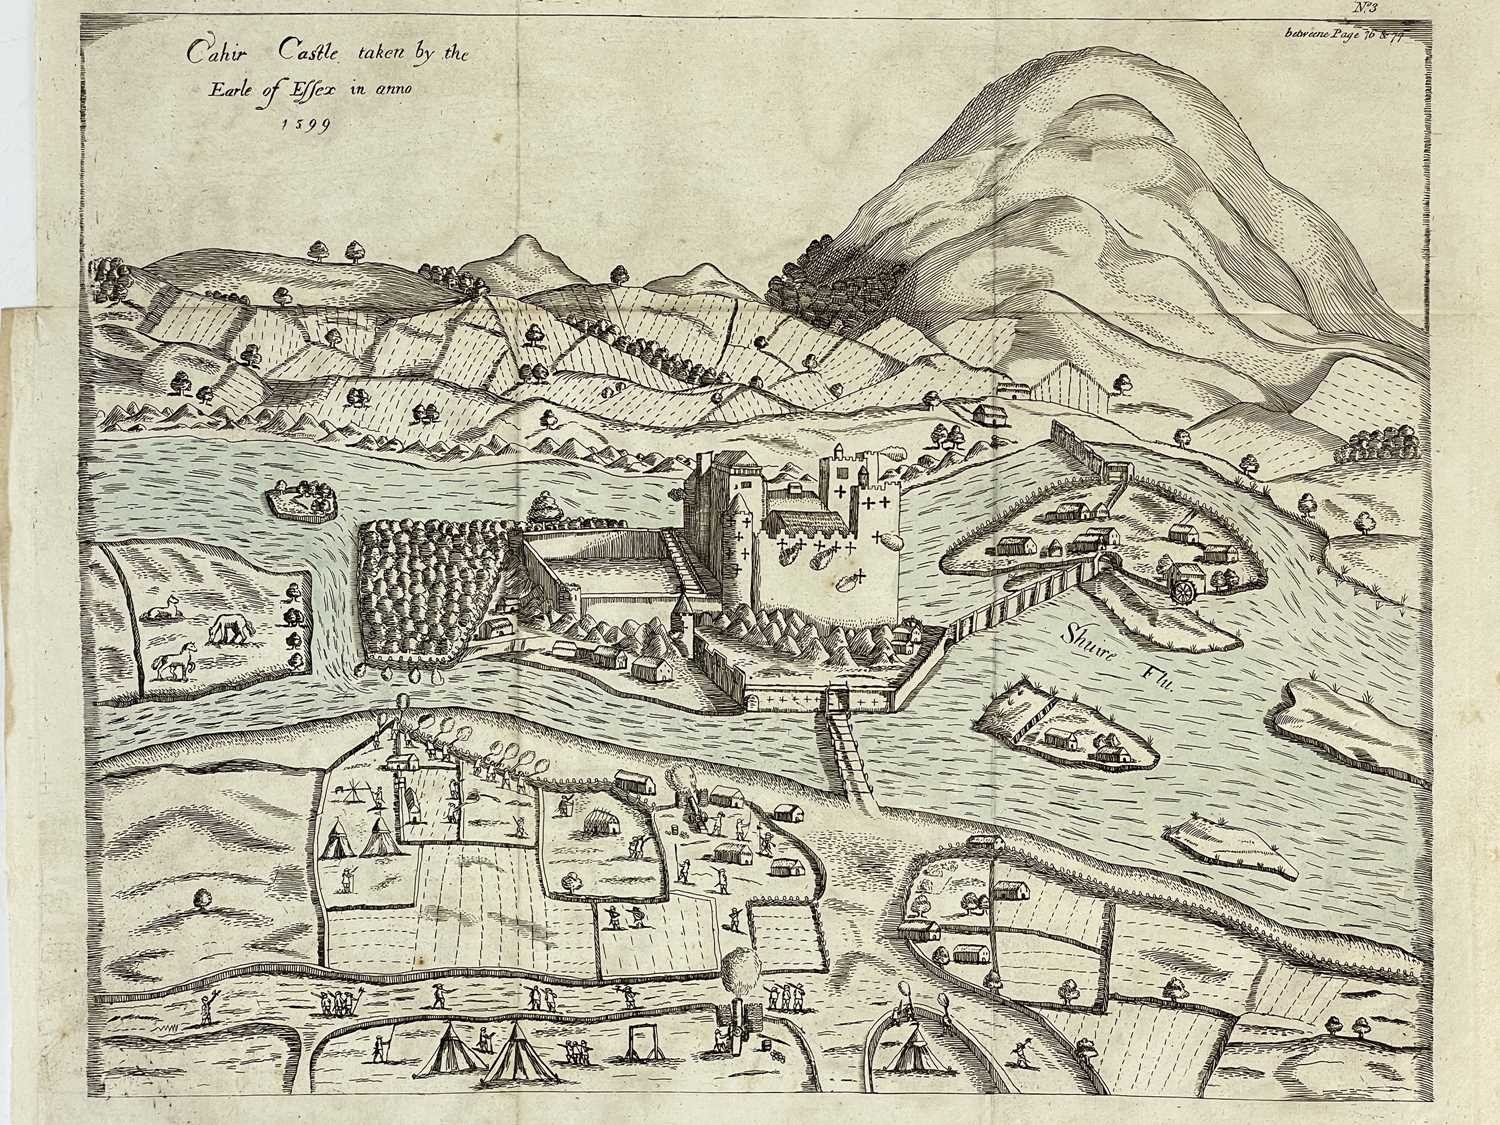 Nº3
betweene Page 76 & 77
Cahir Castle taken by the
Earle of Eſſex in anno
1599
Shuire Flu.